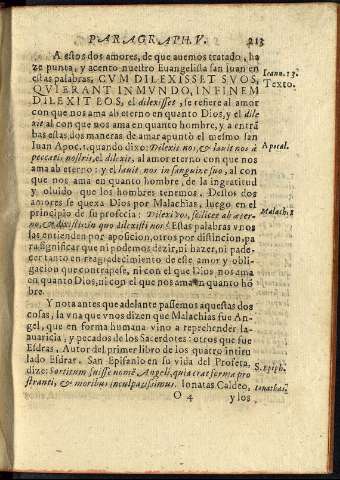 PARAGRAPH. V. 213
A estos dos amores, de que auemos tratado, ha
ze punta, y acento nuestro Euangelista san Iuan en
estas palabras, CVM DILEXISSET SVOS,
QVI ERANT IN MVNDO, IN FINEM
DILEXIT EOS, el dilexisset, se refiere al amor
con que nos ama ab eterno en quanto Dios, y el dile
xit al con que nos ama en quanto hombre, y a entrã
bas estas dos maneras de amar apuntò el mesmo san
Iuan Apoc. 1. quando dixo: Dilexit nos, & lauit nos à
peccatis nostris, el dilexit, al amor eterno con que nos
ama ab eterno: y el lauit nos in sanguine suo, al con
que nos ama en quanto hombre, de la ingratitud
y oluido que los hombres tenemos. Destos dos
amores se quexa Dios por Malachias, luego en el
principio de su profecia: Dilexi vos, scilicet ab æter-
no, & dixistis in quo dilexisti nos? Estas palabras vnos
las entienden por aposicion, otros por distincion, pa
ra significar que ni podemos dezir, ni hazer, ni pade-
cer tanto en reagradecimiento de este amor y obli-
gacion que contrapese, ni con el que Dios nos ama
en quanto Dios, ni con el que nos ama en quanto hõ
bre.
Y nota antes que adelante passemos aquestas dos
cosas, la vna que vnos dizen que Malachias fue An-
gel, que en forma humana vino a reprehender la
auaricia, y pecados de los Sacerdotes: otros que fue
Esdras, Autor del primer libro de los quatro intitu
lado Esdras. San Epifanio en su vida del Profeta,
dize: Sortitum fuisse nomẽ Angeli, quia erat forma pro
stranti, & moribus inculpatissimus. Ionatas Caldeo,
O 4 y los
Ioann. 13.
Texto.
Apocal.
Malach. 1
S. Epiph.
Ionathas.